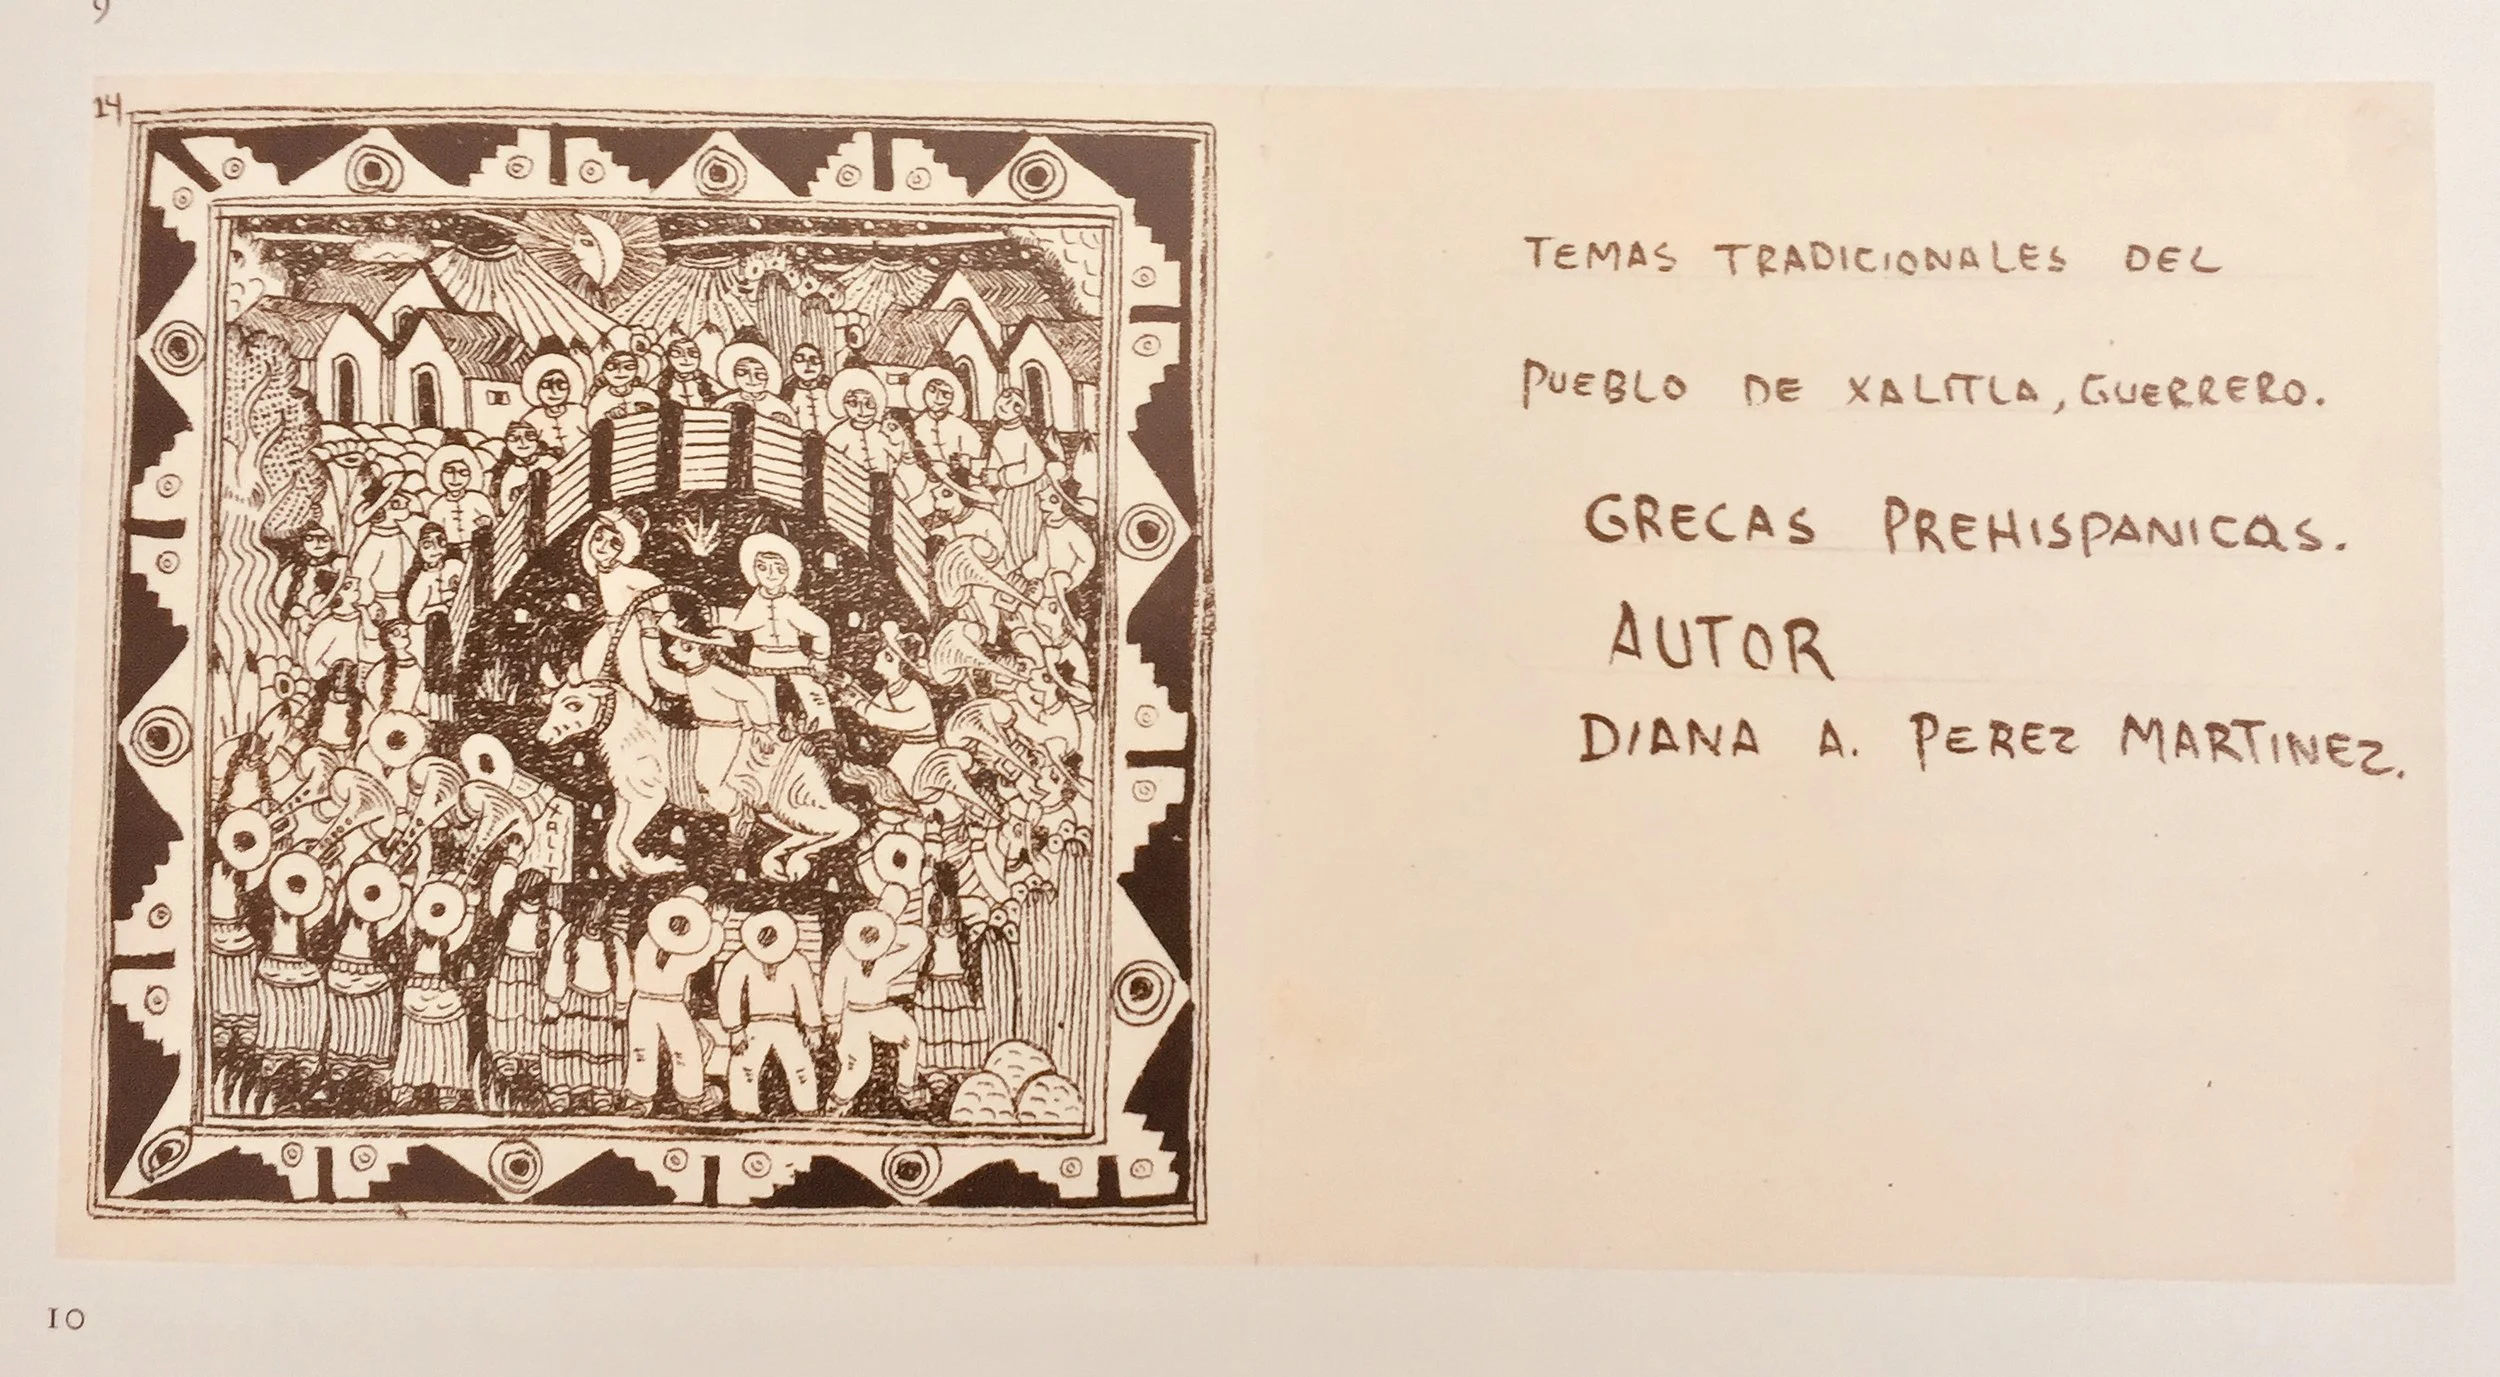 9
14
TEMAS TRADICIONALES DEL
PUEBLO DE XALITLA, GUERRERO.
GRECAS PREHISPANICAS.
AUTOR
DIANA A. PEREZ MARTINEZ.
10